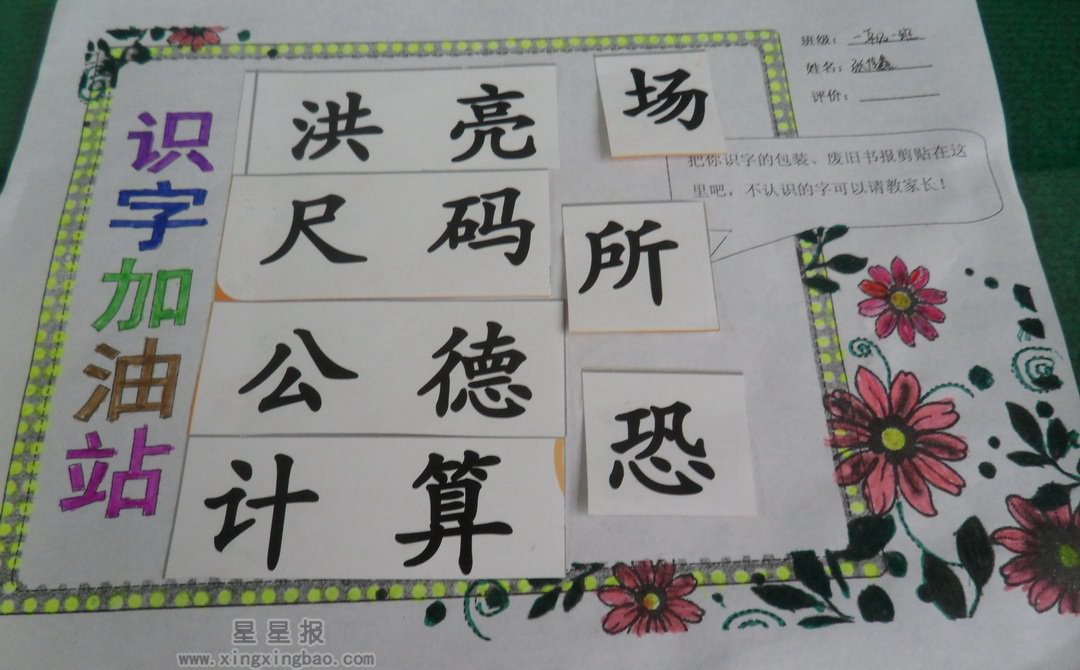 识字加油站
班级：一年级一班
姓名：张
评价：
洪 亮
场
把你识字的包装、废旧书报剪贴在这
里吧，不认识的字可以请教家长！
尺 码
所
公 德
恐
计 算
星星报
www.xingxingbao.com